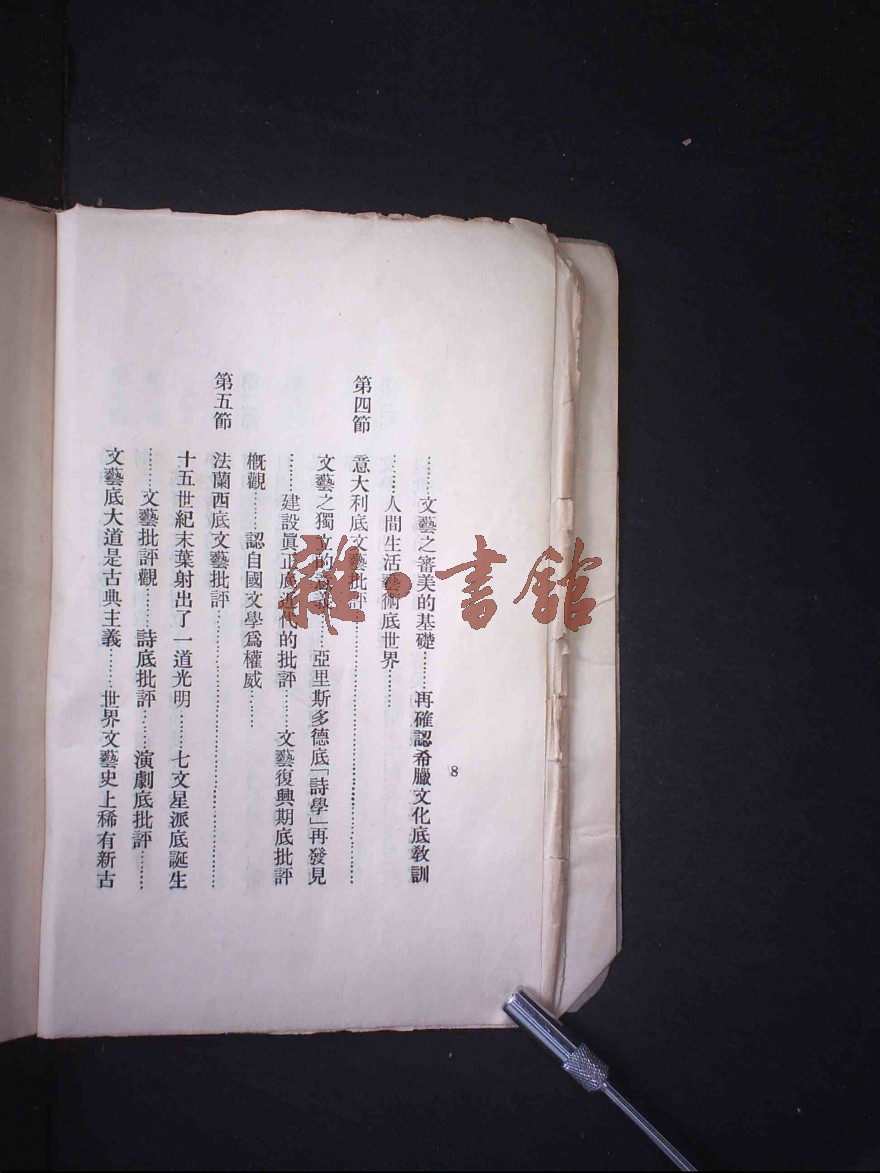 ……文藝之審美的基礎……再確認希臘文化底教訓
……人間生活藝術底世界……
第四節　意大利底文藝批評……
文藝之獨立的……亞里斯多德底「詩學」再發見
……建設眞正底近代的批評……文藝復興期底批評
概觀……認自國文學爲權威……
第五節　法蘭西底文藝批評……
十五世紀末葉射出了一道光明……七文星派底誕生
……文藝批評觀……詩底批評……演劇底批評……
文藝底大道是古典主義……世界文藝史上稀有新古
8
雜·書館